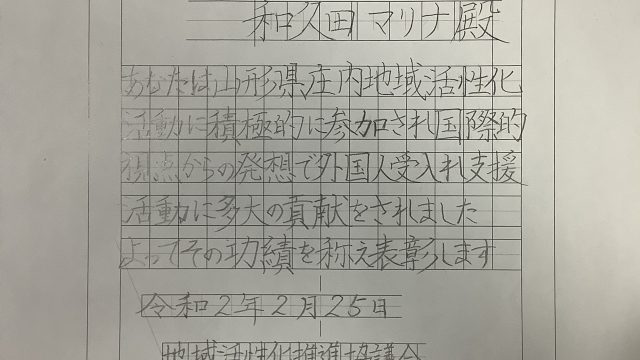 和久田マリナ殿
あなたは山形県庄内地域活性化
活動に積極的に参加され国際的
視点からの発想で外国人受入れ支援
活動に多大の貢献をされました
よってその功績を称え表彰します
令和2年2月25日
地域活性化推進協議会